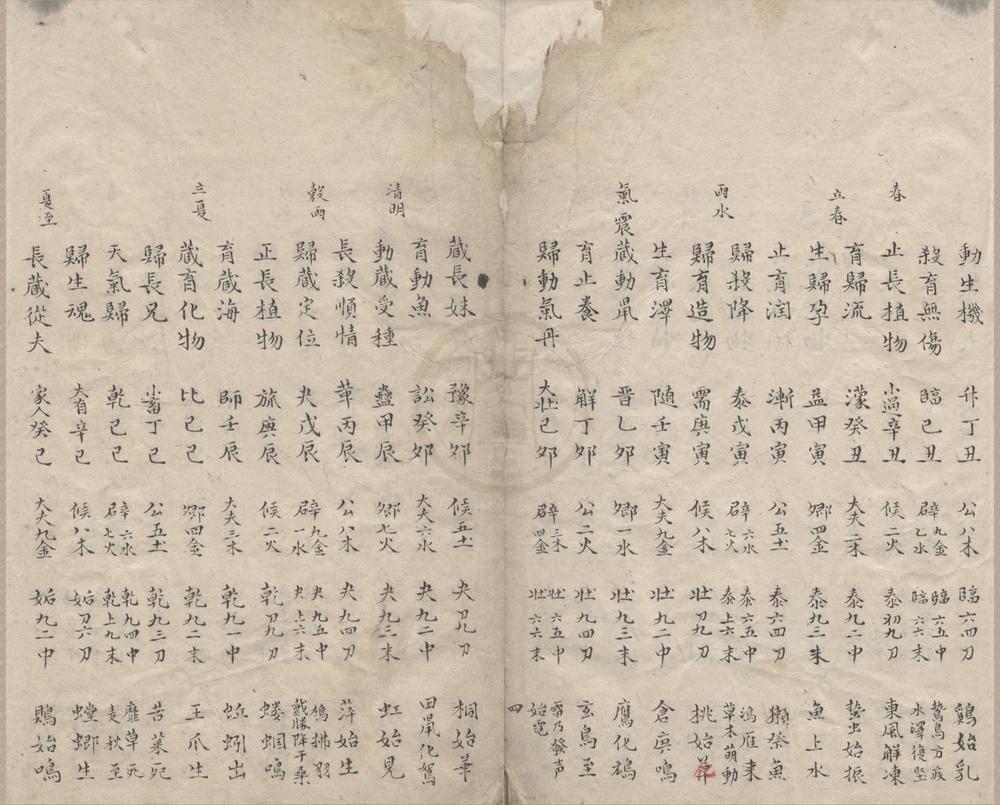 動生機 升丁丑 公八木 臨六四刀 鷄始乳
殺育無傷 臨己丑 辟九金乙水 臨六五中臨六六末 鷙鳥方疾水澤復堅
春 止長植物 小過辛丑 候二火 泰初九末 東風解凍
育歸流 濛癸丑 大夫三木 泰九二中 蟄虫始振
立春 生歸孕 益甲寅 鄉四金 泰九三末 魚上水
止育润 漸丙寅 公五土 泰六四刀 獺祭魚
歸殺降 泰戊寅 辟六水七火 泰六五中泰上六末 鴻雁来草木萌動
雨水 歸育造物 需庚寅 候八木 壯刀九刀 挑始花
生育澤 随壬寅 大夫九金 壯九二中 倉庚鳴
氣震蔵動鼡 晋乙夘 鄉一水 壯九三末 鷹化鵓
育止養 解丁夘 公二火 壯九四刀 玄鳥至
歸動氣丹 大壯己夘 辟三木四金 壯六五中壯六六末 雷乃發声始電
四
蔵長妹 豫辛夘 候五土 夬刀九刀 桐始華
育動魚 訟癸夘 大夫六水 夬九二中 田鼡化鴽
清明 動蔵受種 蠱甲辰 鄉七火 夬九三末 虹始見
長殺順情 革丙辰 公八木 夬九四刀 萍始生
穀雨 歸蔵定位 夬戊辰 辟九金一水 夬九五中夬上六末 鳩拂羽戴勝降于桑
正長植物 旅庚辰 候二火 乾刀九刀 螻蟈鳴
育蔵海 師壬辰 大夫三木 乾九一中 蚯蚓出
立夏 蔵育化物 比己巳 鄉四金 乾九二末 王爪生
歸長兄 小畜丁巳 公五土 乾九三刀 苦菜死
天氣歸 乾己巳 辟六水七火 乾九四中乾上九末 靡草死麦秋至
歸生魂 大有辛巳 候八木 姤刀六刀 螳螂生
夏至 長蔵從夫 家人癸巳 大夫九金 姤九二中 鵙始鳴